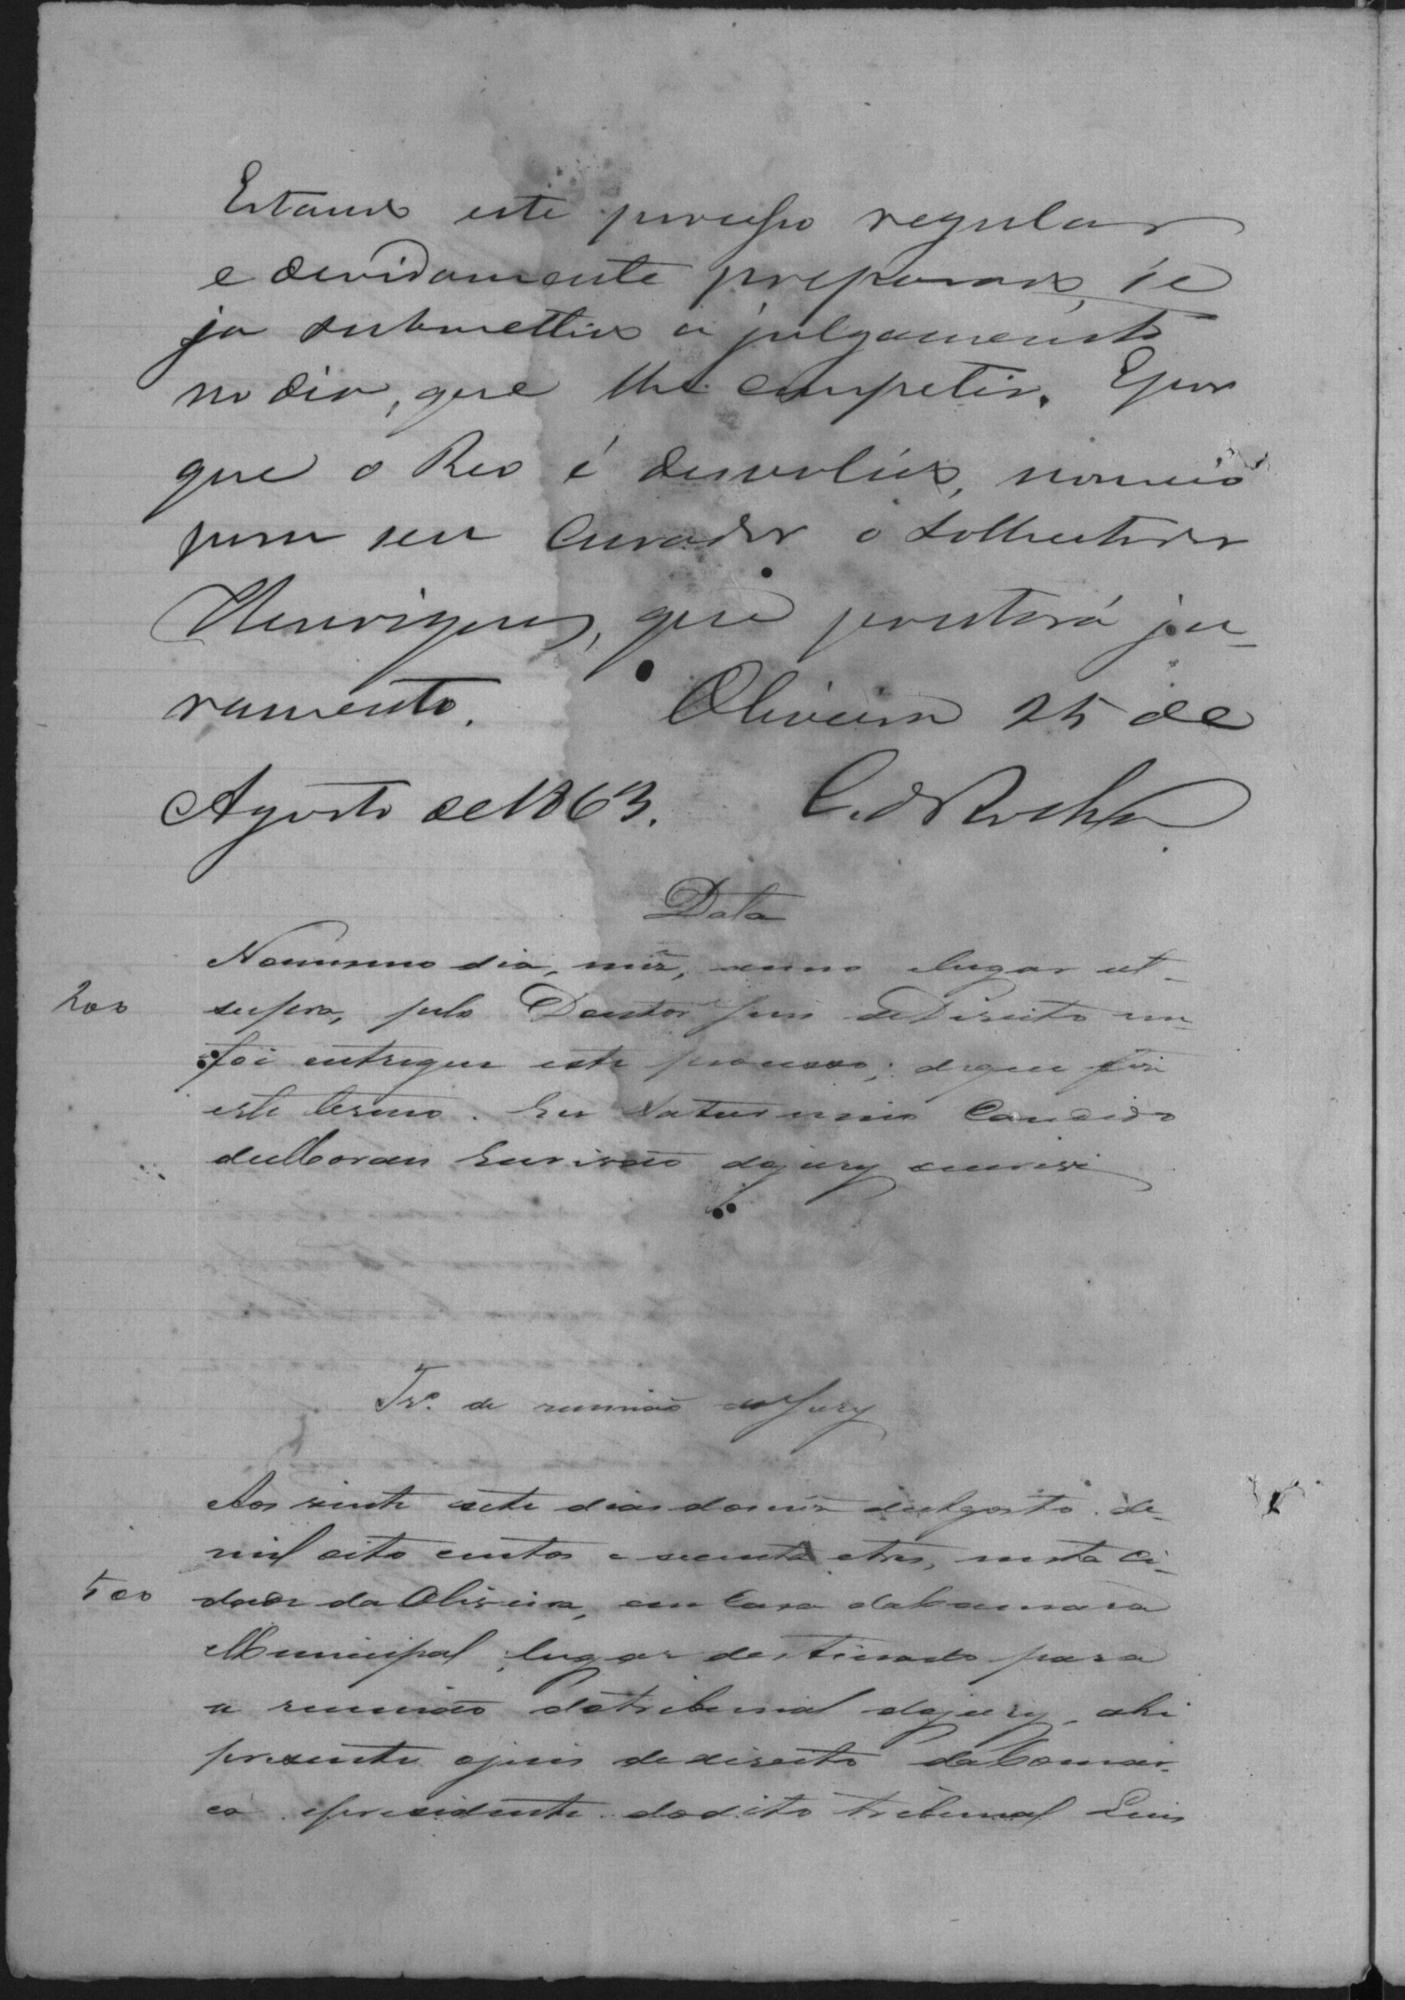 Estando este processo regular
e devidamente preparado, se
ja submettido a julgamento
no dia, que lhe competir. E por
que o Reo é desvalido, nomeio
para seu Curador o Sollicitador
Henriques, que prestará ju-
ramento. Oliveira 25 de
Agosto de 1863. C. da Rocha
Data
No mesmo dia, mez, anno e lugar ut
200
supra, pelo Doutor Juis de Direito me
foi entregue este processo; de que fiz
este termo. Eu Saturnino Candido
de Moraes Escrivão do jury escrevi
Tr.º de reunião do Jury
Aos vinte sete dias do mez de Agosto de
mil oito centos e secenta e tres, nesta Ci-
500
dade da Oliveira, em Casa da Camara
Municipal, lugar destinado para
a reunião do tribunal do jury, ahi
presente o juis de direito da Comar-
ca e presidente do dito tribunal Luis